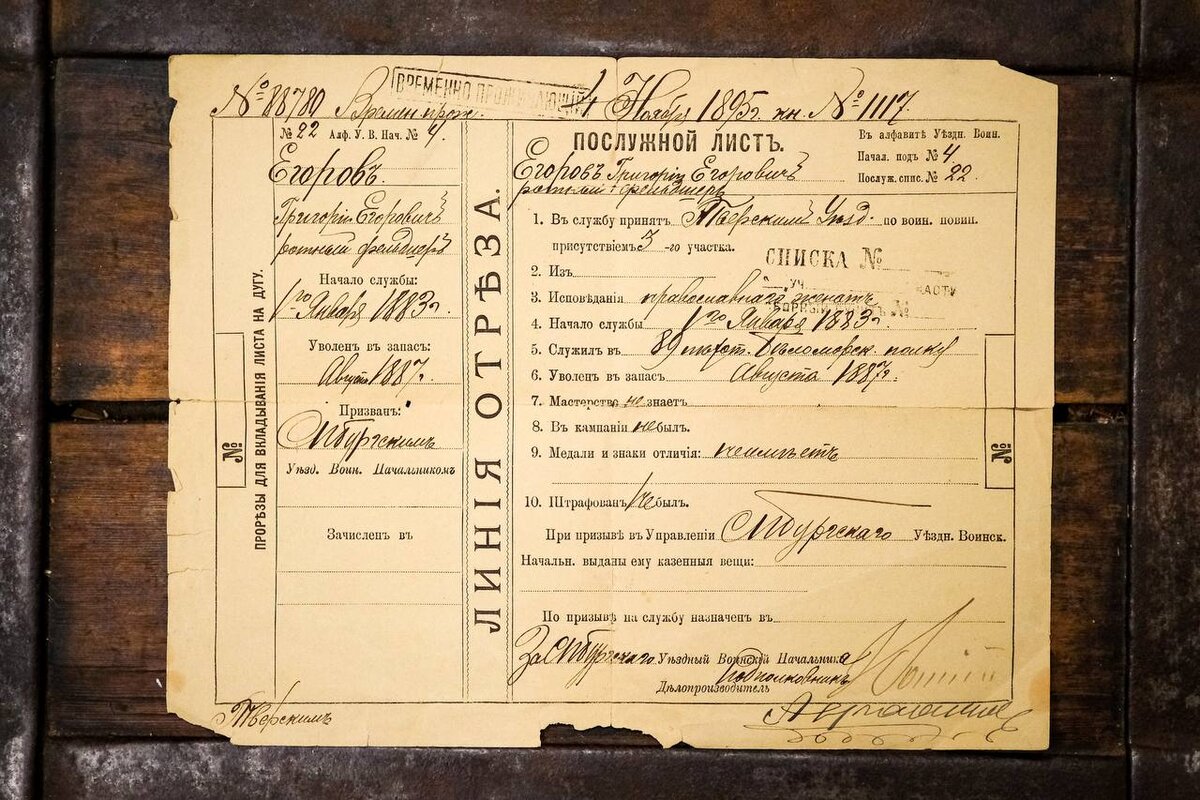 № 88780 Времен. прож. 4 Ноября 1895 г. кн. № 1117
ВРЕМЕННО ПРОЖИВАЮЩІЙ
№ 22 Алф. У. В. Нач. № 4.
Егоровъ.
Григорій Егоровичъ
ротный фельдшеръ
Начало службы:
1го Января 1883 г.
Уволенъ въ запасъ:
Августъ 1887 г.
Призванъ:
СПбургскимъ
Уѣзд. Воин. Начальникомъ
Зачисленъ въ
ПРОРѢЗЫ ДЛЯ ВКЛАДЫВАНІЯ ЛИСТА НА ДУГУ.
№
ЛИНІЯ ОТРѢЗА.
ПОСЛУЖНОЙ ЛИСТЪ.
Въ алфавитѣ Уѣздн. Воин.
Начал. подъ № 4
Послуж. спис. № 22.
Егоровъ Григорій Егоровичъ
ротный фельдшеръ
1. Въ службу принятъ Тверскимъ Уѣзд. по воин. повин.
присутствіемъ 3-го участка.
СПИСКА №
2. Изъ
3. Исповѣданія православнаго женатъ
4. Начало службы 1го Января 1883 г.
5. Служилъ въ 89 пѣхот. Бѣломорск. полку
6. Уволенъ въ запасъ Августа 1887 г.
7. Мастерство не знаетъ
8. Въ кампаніи не былъ.
9. Медали и знаки отличія: неимѣетъ
10. Штрафованъ не былъ.
При призывѣ въ Управленіи СПбургскаго Уѣздн. Воинск.
Начальн. выданы ему казенныя вещи:
По призывѣ на службу назначенъ въ
За СПбургскаго Уѣздный Воинскій Начальника
Подполковникъ
Дѣлопроизводитель
№
Тверскимъ